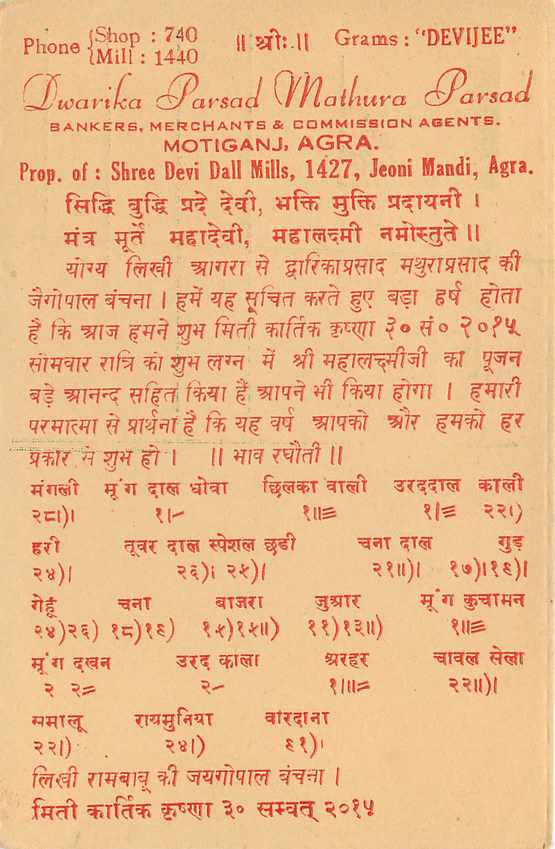 Phone { Shop : 740
Mill : 1440
॥ श्रीः ॥
Grams : "DEVIJEE"
Dwarika Parsad Mathura Parsad
BANKERS, MERCHANTS & COMMISSION AGENTS.
MOTIGANJ, AGRA.
Prop. of : Shree Devi Dall Mills, 1427, Jeoni Mandi, Agra.
सिद्धि बुद्धि प्रदे देवी, भक्ति मुक्ति प्रदायनी ।
मंत्र मूर्ते महादेवी, महालक्ष्मी नमोस्तुते ॥
योग्य लिखी आगरा से द्वारिकाप्रसाद मथुराप्रसाद की
जैगोपाल बंचना । हमें यह सूचित करते हुए बड़ा हर्ष होता
है कि आज हमने शुभ मिती कार्तिक कृष्णा ३० सं० २०१५
सोमवार रात्रि को शुभ लग्न में श्री महालक्ष्मीजी का पूजन
बड़े आनन्द सहित किया हैं आपने भी किया होगा । हमारी
परमात्मा से प्रार्थना है कि यह वर्ष आपको और हमको हर
प्रकार से शुभ हो । ॥ भाव रघौती ॥
मंगली मूंग दाल धोवा छिलका वाली उरददाल काली
२८।)। १।- १॥≡ १।≡ २२।)
हरी तूवर दाल स्पेशल छडी चना दाल गुड़
२४)। २६)। २५)। २१॥)। १७)।१६)।
गेहूं चना बाजरा जुआर मूंग कुचामन
२४)२६) १८)१६) १५)१५॥) ११)१३॥) १॥≡
मूंग दखन उरद काला अरहर चावल सेला
२ २= २- १।॥= २२॥)।
ममालू रायमुनिया बारदाना
२२।) २४।) ६१)।
लिखी रामबाबू की जयगोपाल बंचना ।
मिती कार्तिक कृष्णा ३० सम्वत् २०१५